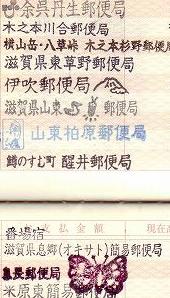 余呉丹生郵便局
木之本川合郵便局
横山岳・八草峠 木之本杉野郵便局
滋賀県東草野郵便局
伊吹郵便局
滋賀県山東
山東柏原郵便局
鱒のすむ町 醒井郵便局
払金額
現在
番場宿
滋賀県息郷(オキサト)簡易郵便局
息長郵便局
米原東簡易郵便局